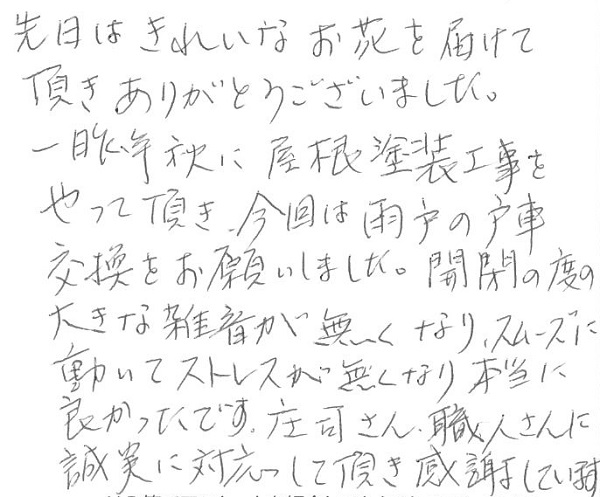 先日はきれいなお花を届けて
頂きありがとうございました。
一昨年秋に屋根塗装工事を
やって頂き、今回は雨戸の戸車
交換をお願いしました。開閉の度の
大きな雑音が無くなり、スムーズに
動いてストレスが無くなり本当に
良かったです。庄司さん、職人さんに
誠実に対応して頂き感謝しています